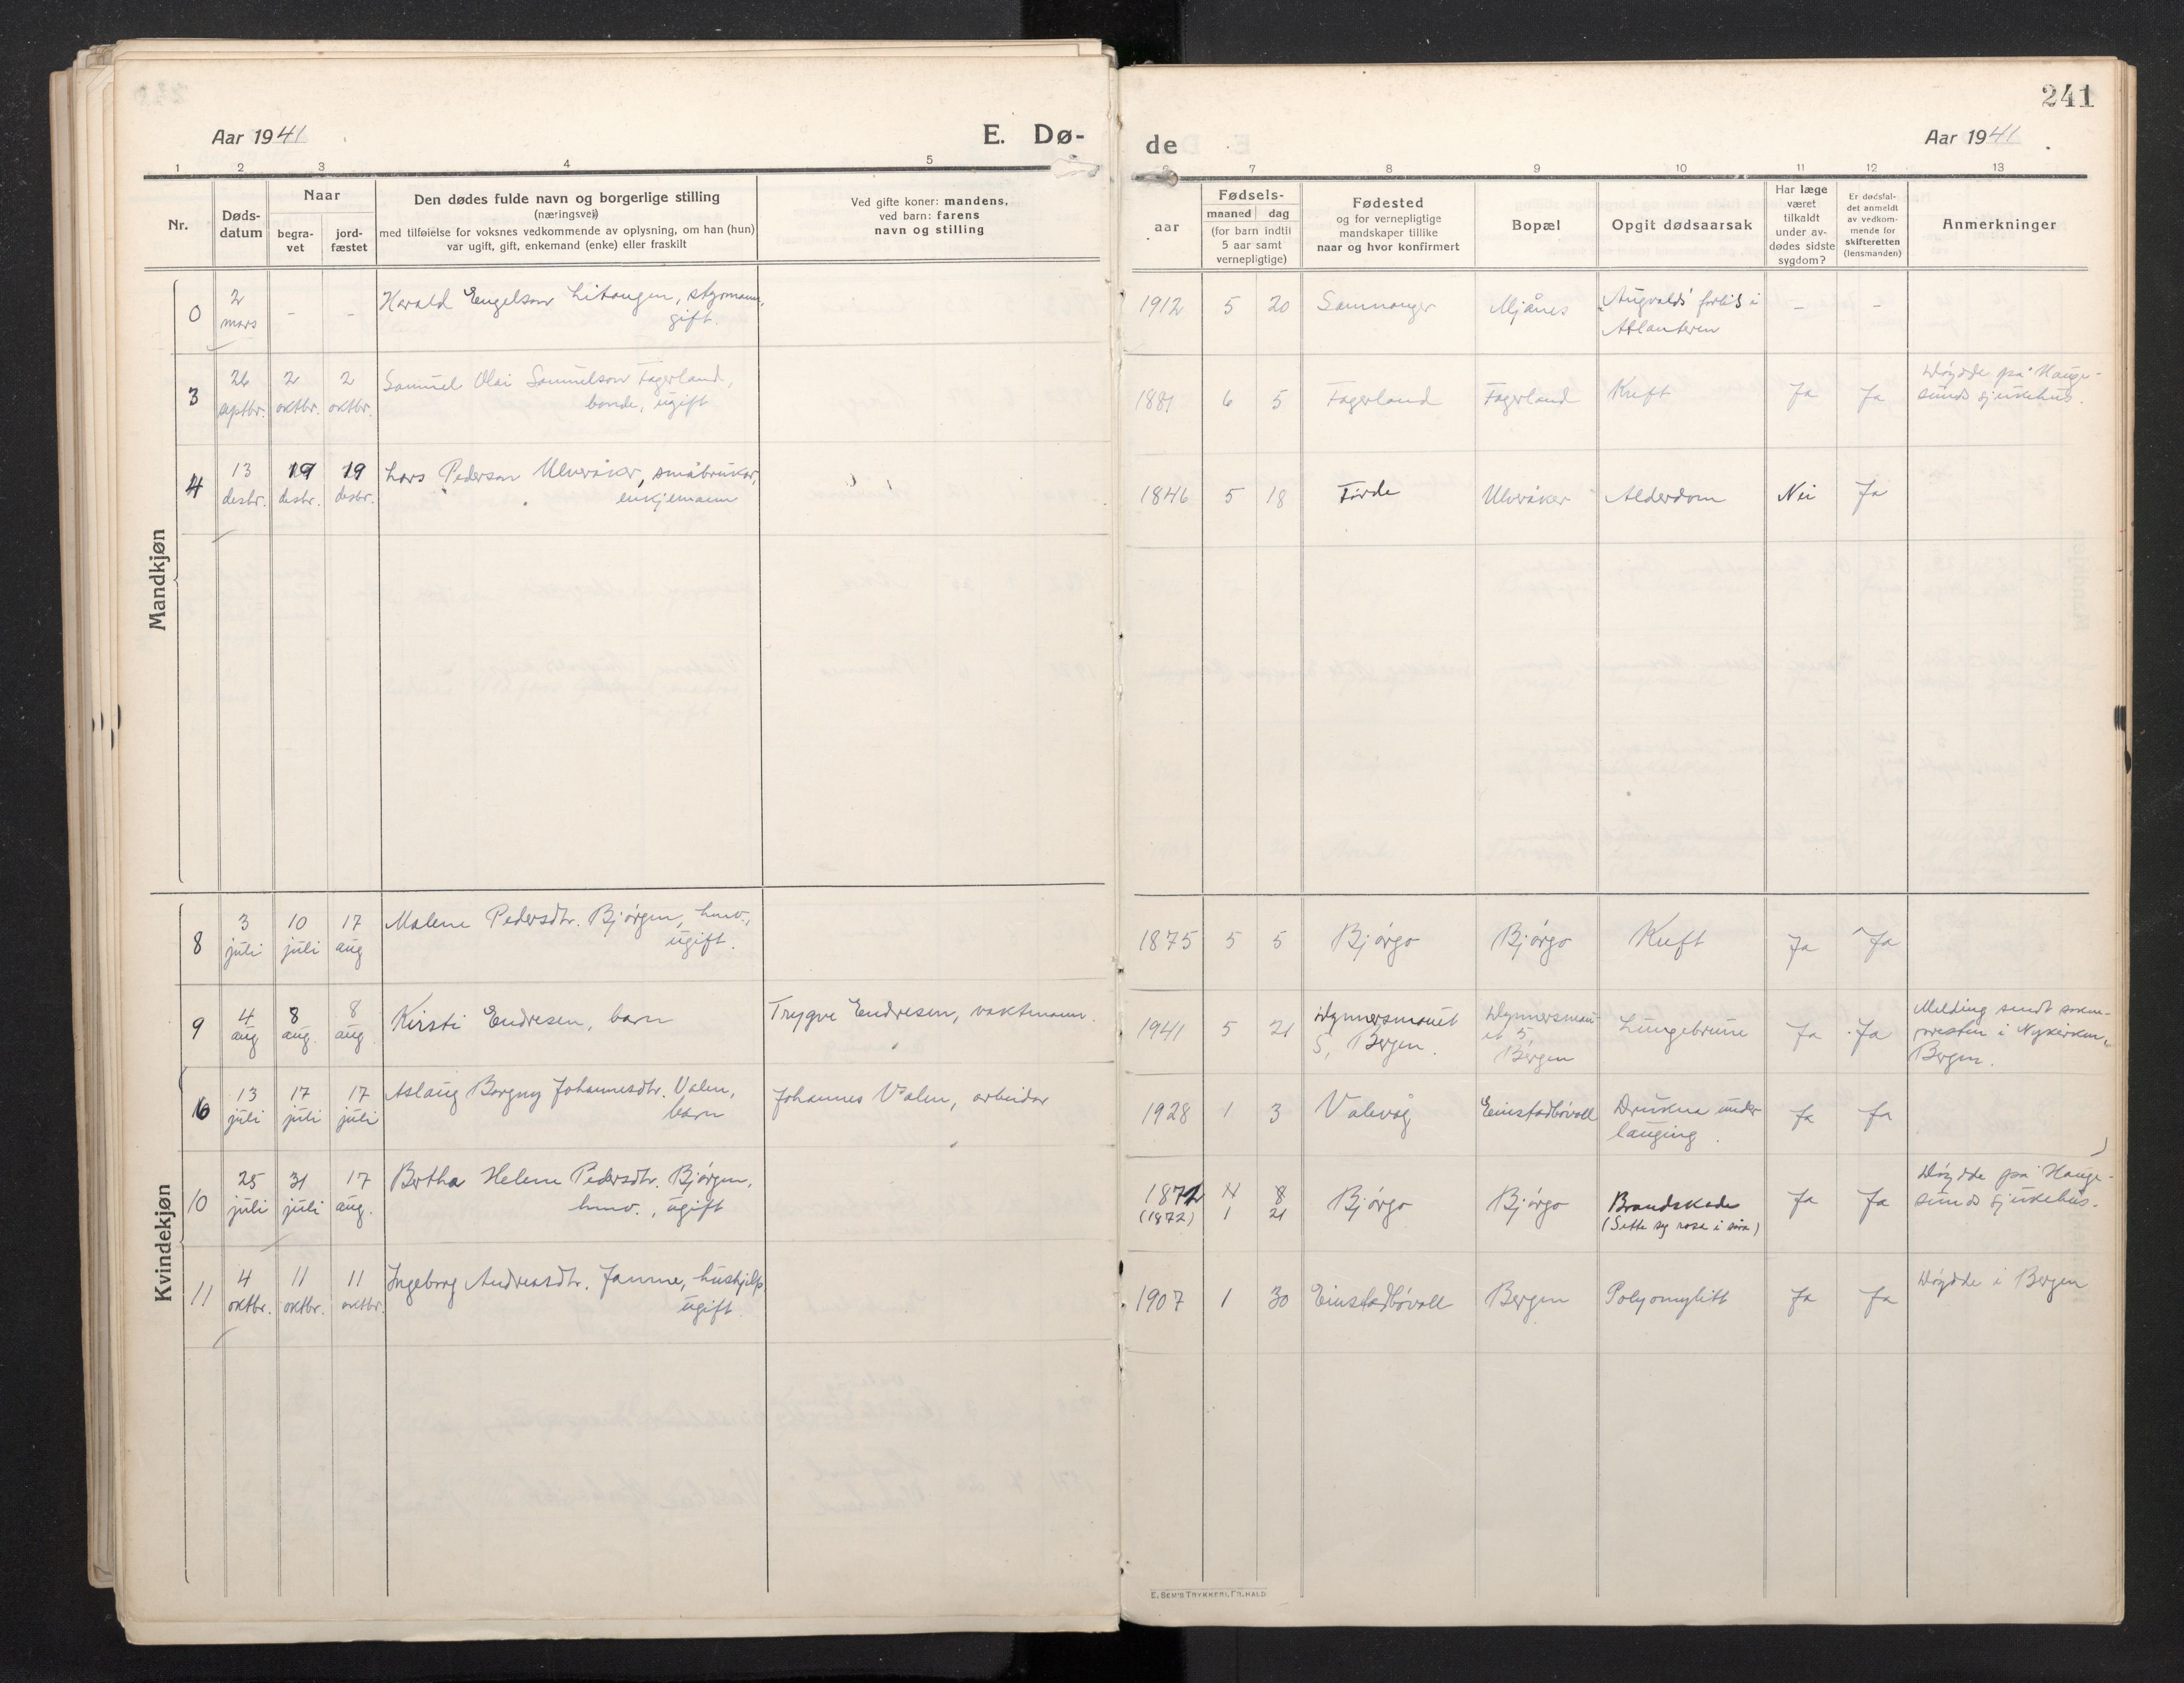 241
Aar 1941
E. Dø-
de
Aar 1941
1 2 3 4 5
7 8 9 10 11 12 13
Nr.
Døds-
datum
Naar
begra-
vet
jord-
fæstet
Den dødes fulde navn og borgerlige stilling
(næringsvei)
med tilføielse for voksnes vedkommende av oplysning, om han (hun)
var ugift, gift, enkemand (enke) eller fraskilt
Ved gifte koner: mandens,
ved barn: farens
navn og stilling
Fødsels-
aar
maaned dag
(for barn indtil
5 aar samt
vernepligtige)
Fødested
og for vernepligtige
mandskaper tillike
naar og hvor konfirmert
Bopæl
Opgit dødsaarsak
Har læge
været
tilkaldt
under av-
dødes sidste
sygdom?
Er dødsfal-
det anmeldt
av vedkom-
mende for
skifteretten
(lensmanden)
Anmerkninger
Mandkjøn
0
2
mars
-
-
Harald Engelson Litangen, styrmann,
gift.
1912 5 20
Samnanger
Mjånes
"Augvalds" forlis i
Atlanteren
-
-
3
26
septbr.
2
oktbr.
2
oktbr.
Samuel Olai Samuelson Fagerland,
bonde, ugift
1881 6 5
Fagerland
Fagerland
Kreft
Ja
Ja
Døydde på Hauge-
sunds sjukehus.
4
13
desbr.
19
desbr.
19
desbr.
Lars Pederson Ulveråker, småbrukar,
enkjemann
1846 5 18
Førde
Ulveråker
Alderdom
Nei
Ja
Kvindekjøn
8
3
juli
10
juli
17
aug
Malene Pedersdtr. Bjørgen, husv.,
ugift.
1875 5 5
Bjørgo
Bjørgo
Kreft
Ja
Ja
9
4
aug
8
aug.
8
aug
Kirsti Endresen, barn
Trygve Endresen, vaktmann.
1941 5 21
5, Bergen.
5,
Bergen
Lungebrune
Ja
Ja
Melding sendt sokne-
presten i Nykirken,
Bergen.
6
13
juli
17
juli
17
juli
Aslaug Borgny Johannesdtr. Valen,
barn
Johannes Valen, arbeidar
1928 1 3
Valevåg
Einstadbøvoll
Drukna under
lauging.
Ja
Ja
10
25
juli
31
juli
17
aug.
Bertha Helene Pedersdtr. Bjørgen,
husv., ugift
1872 4 8
(1872) 1 21
Bjørgo
Bjørgo
Brandskade
(Sette sg rose i såra)
Ja
Ja
Døydde på Hauge-
sunds sjukehus.
11
4
oktbr.
11
oktbr.
11
oktbr.
Ingeborg Andreasdtr. Tamne, hushjelp
ugift.
1907 1 30
Einstadbøvoll
Bergen
Polyomylitt
Ja
Ja
Døydde i Bergen
E. SEM'S TRYKKERI, FR.HALD